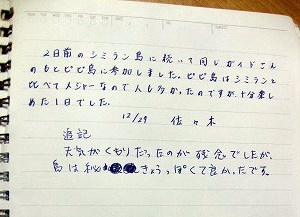 2日前のシミラン島に続いて同じガイドさん
のもとピピ島に参加しました。ピピ島はシミランと
比べてメジャーなので人も多かったのですが、十分楽し
めた1日でした。
12/29 佐々木
追記
天気がくもりだったのが残念でしたが、
島は秘きょうっぽくて良かったです。